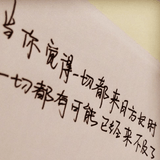 当你觉得一切都来日方长时
一切都有可能已经来不及了